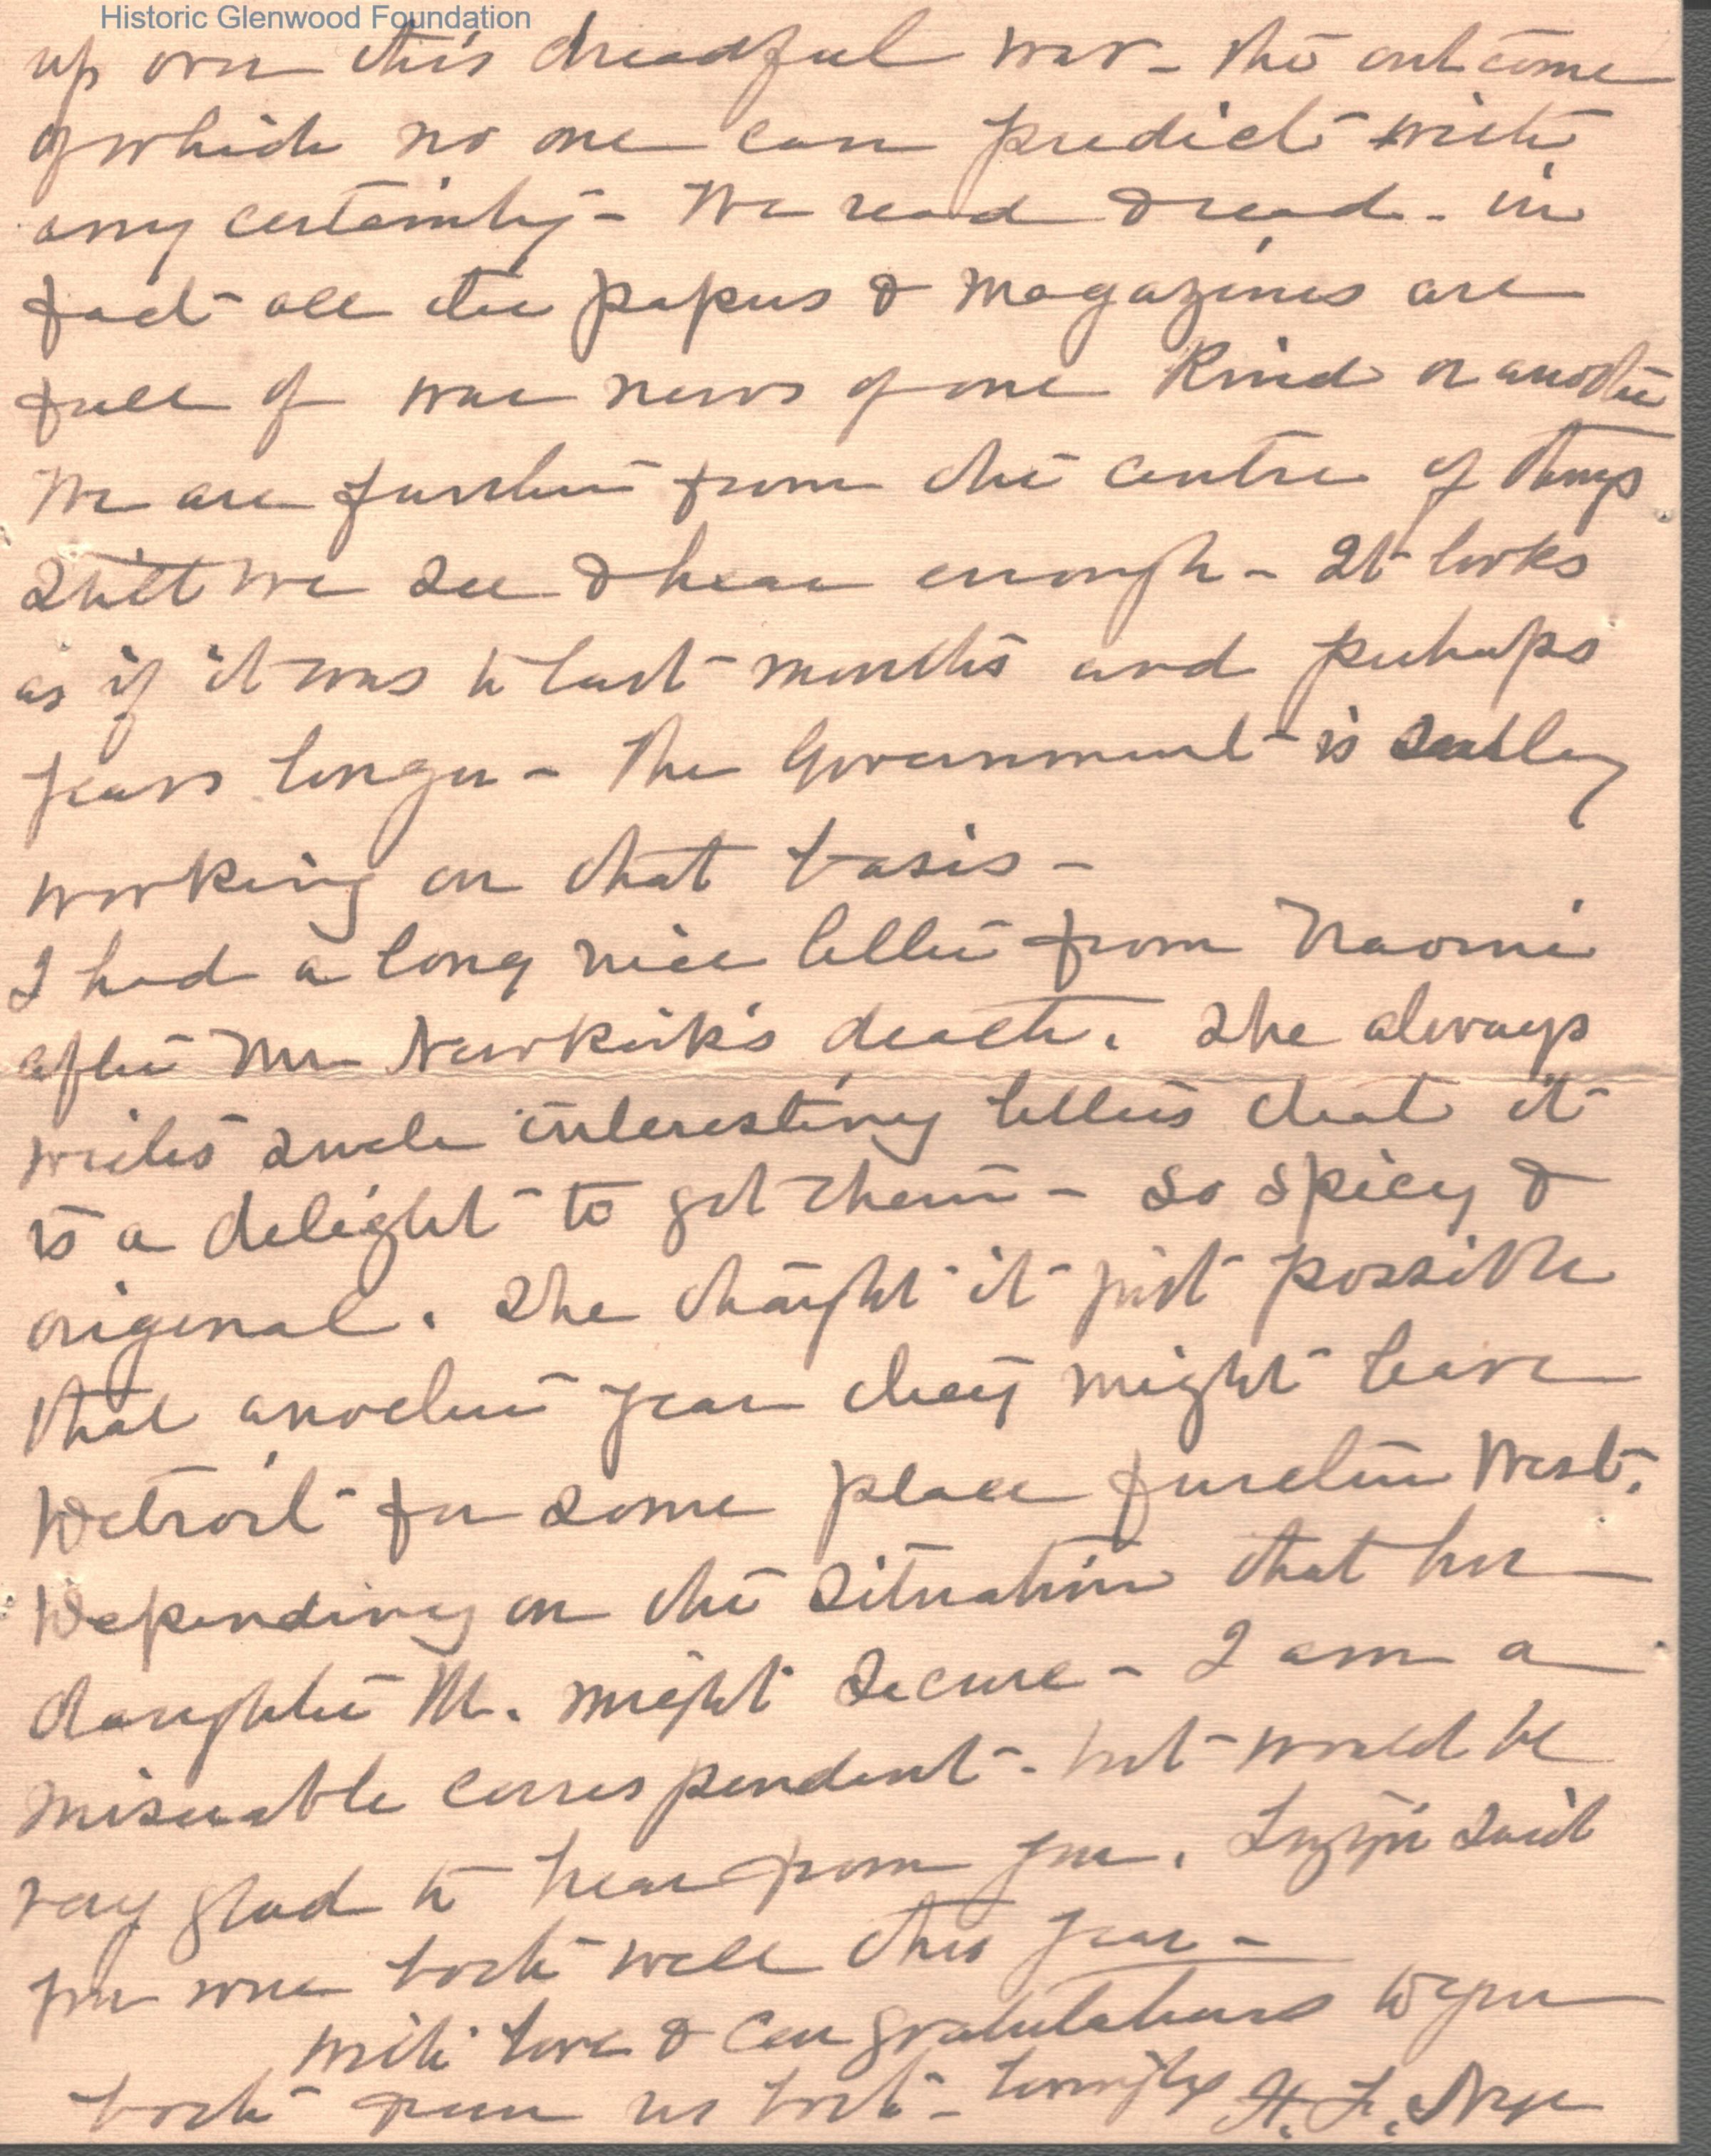 Historic Glenwood Foundation
up over this dreadful war - the outcome
of which no one can predict with
any certainty - We read & read - in
fact all the papers & magazines are
full of war news of one kind or another
We are further from the centre of things
Still we see & hear enough - It looks
as if it was to last months and perhaps
years longer - The Government is
working on that basis -
I had a long nice letter from Naomi
after Mr Newkirk's death. She always
writes such interesting letters that it
is a delight to get them - so spicy &
original. She thought it just possible
that another year they might leave
Detroit for some place further West.
Depending on the situation that her
daughter M. might secure - I am a
miserable correspondent - but would be
very glad to hear from you. said
you were both well this year -
with love & congratulations to you
both from us both - H. L. Nye